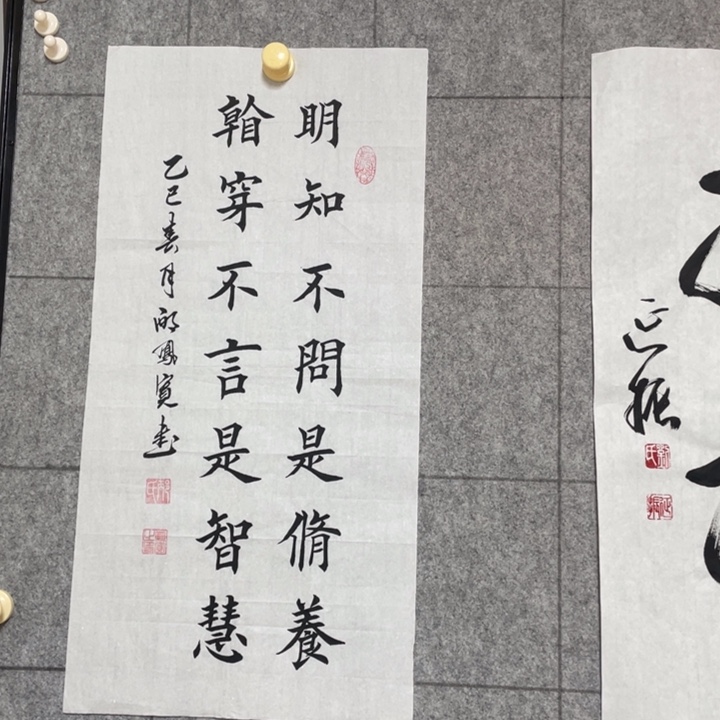 明知不問是脩養
穿不言是智慧
乙巳春月鳳寬書
延振